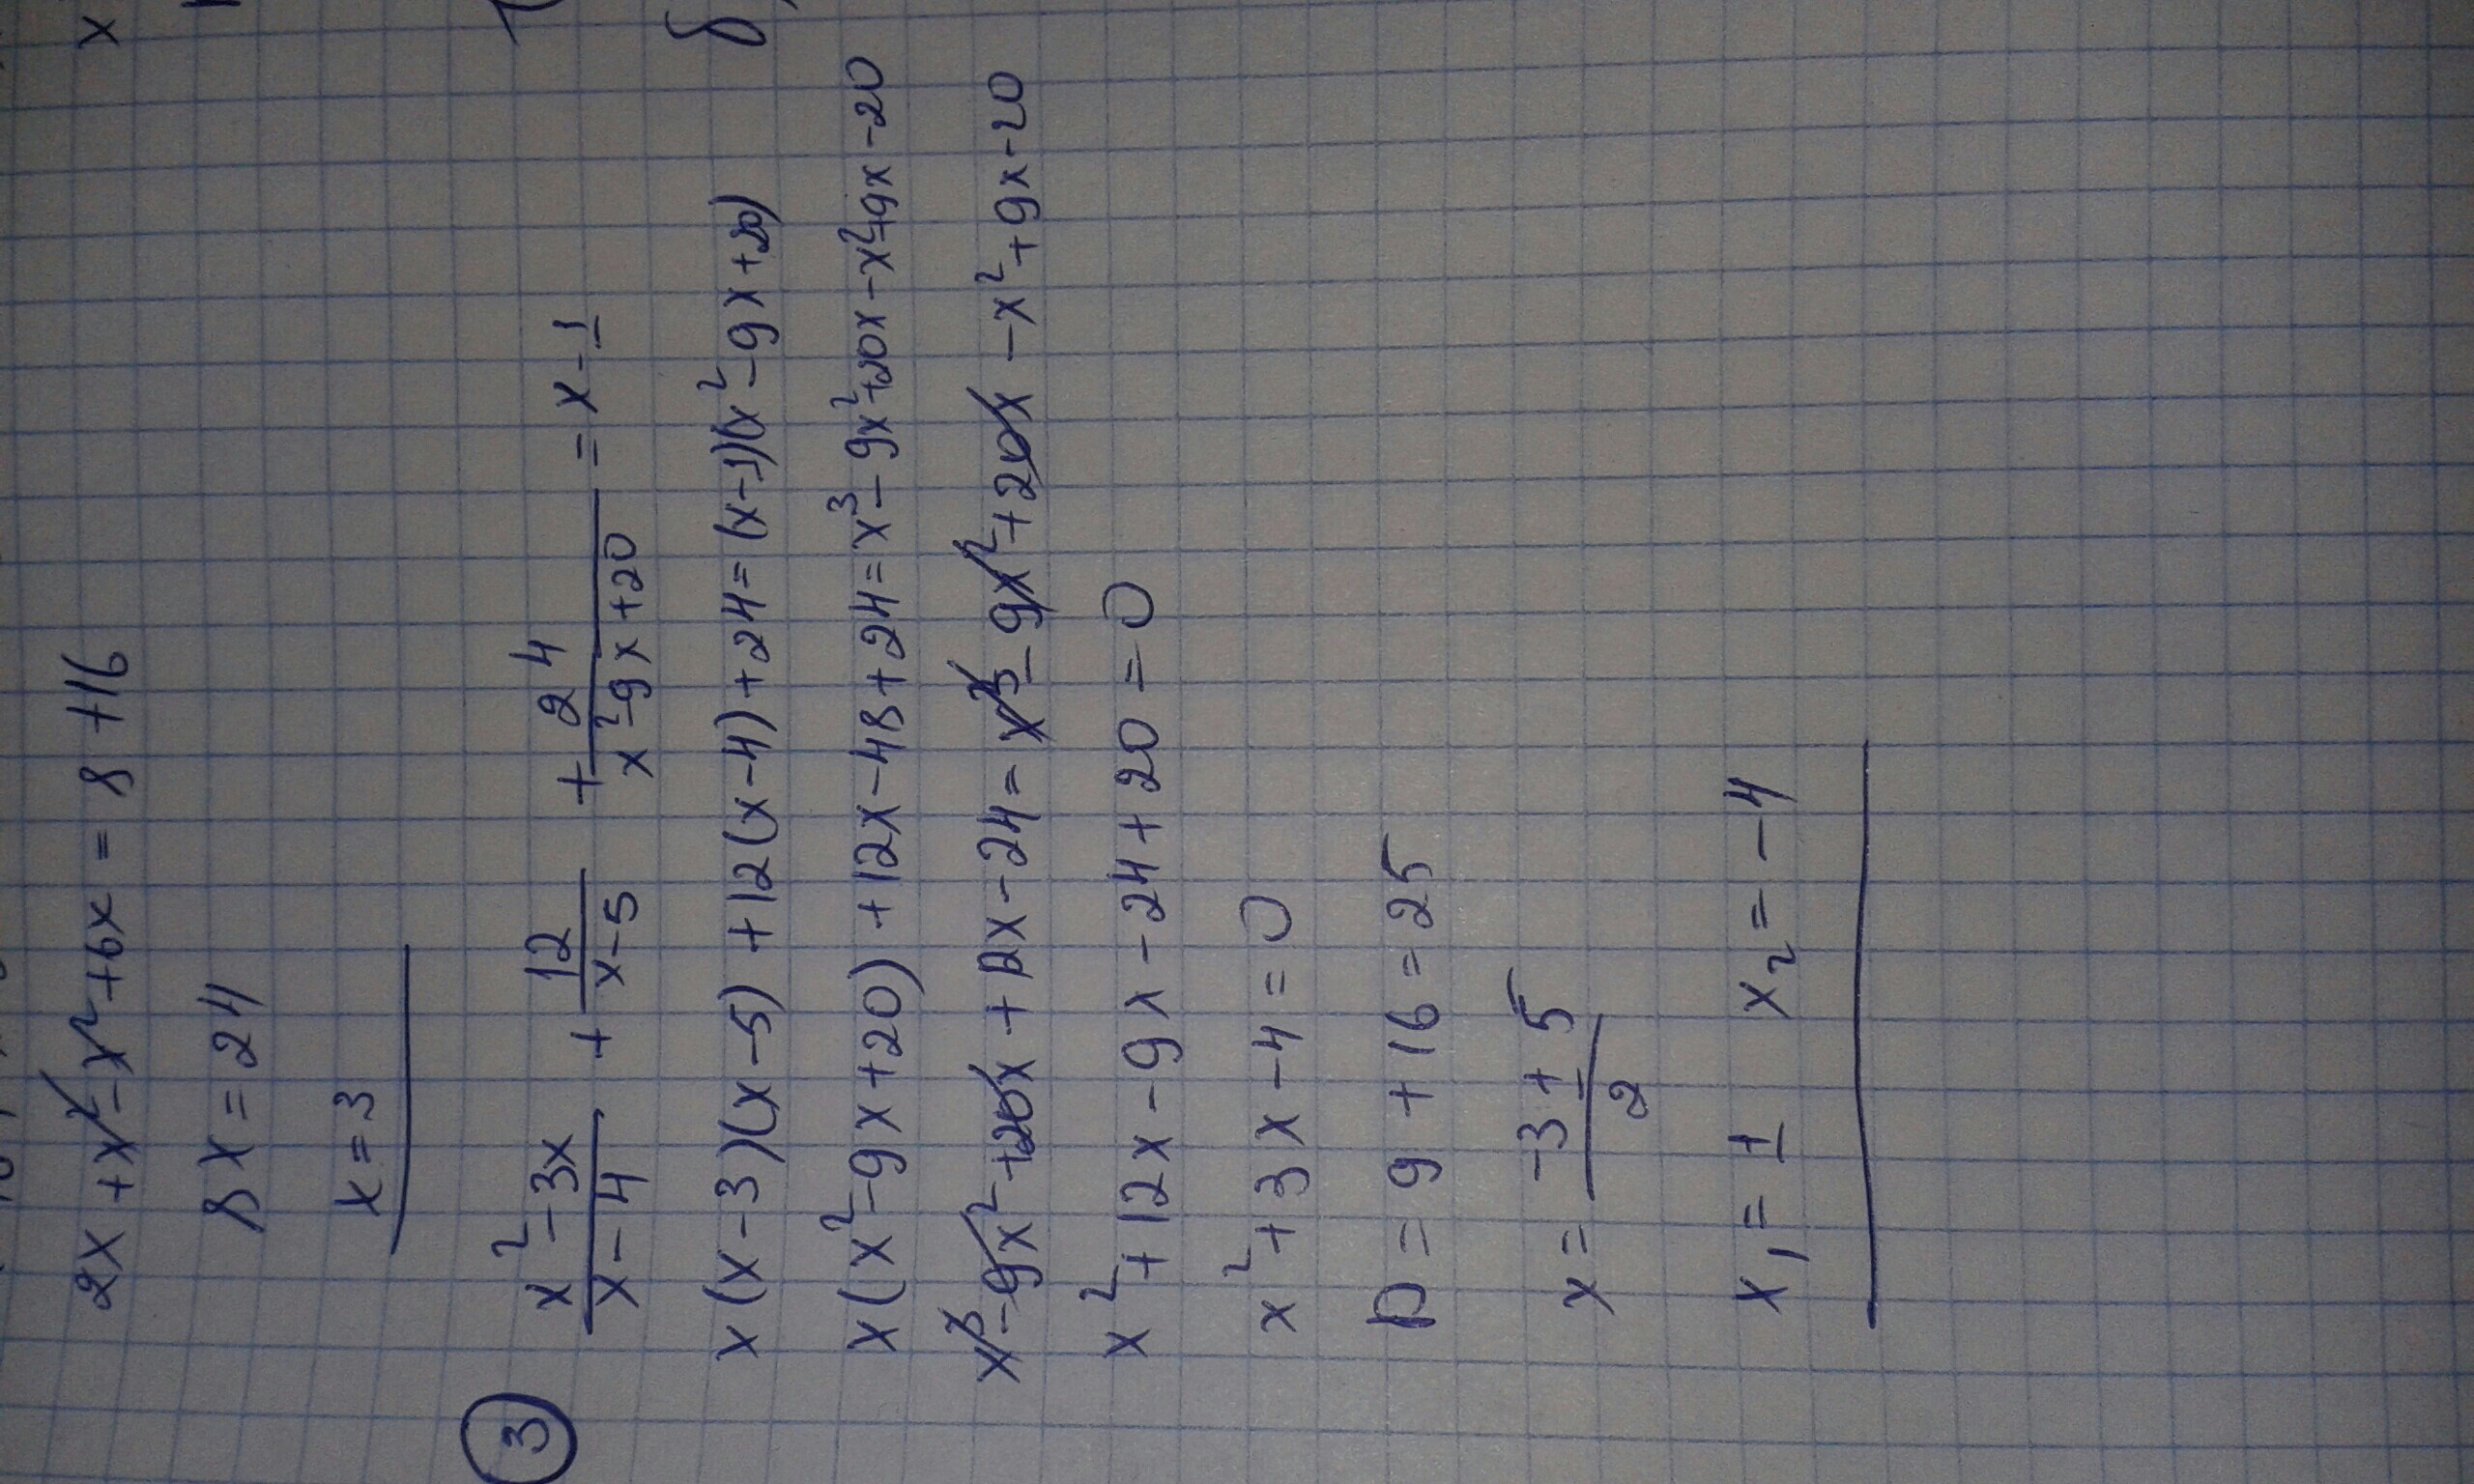 2x + x² - x² + 6x = 8 + 16
8x = 24
x = 3
③ (x² - 3x)/(x - 4) + 12/(x - 5) + 24/(x² - 9x + 20) = x - 1
x(x - 3)(x - 5) + 12(x - 4) + 24 = (x - 1)(x² - 9x + 20)
x(x² - 9x + 20) + 12x - 48 + 24 = x³ - 9x² + 20x - x² + 9x - 20
x³ - 9x² + 20x + 12x - 24 = x³ - 9x² + 20x - x² + 9x - 20
x² + 12x - 9x - 24 + 20 = 0
x² + 3x - 4 = 0
D = 9 + 16 = 25
x = (-3 ± 5)/2
x₁ = 1 x₂ = -4
x
б)